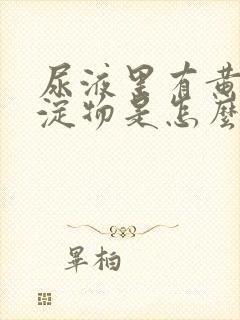 尿液里有黄
淀物是怎麼
毕柏